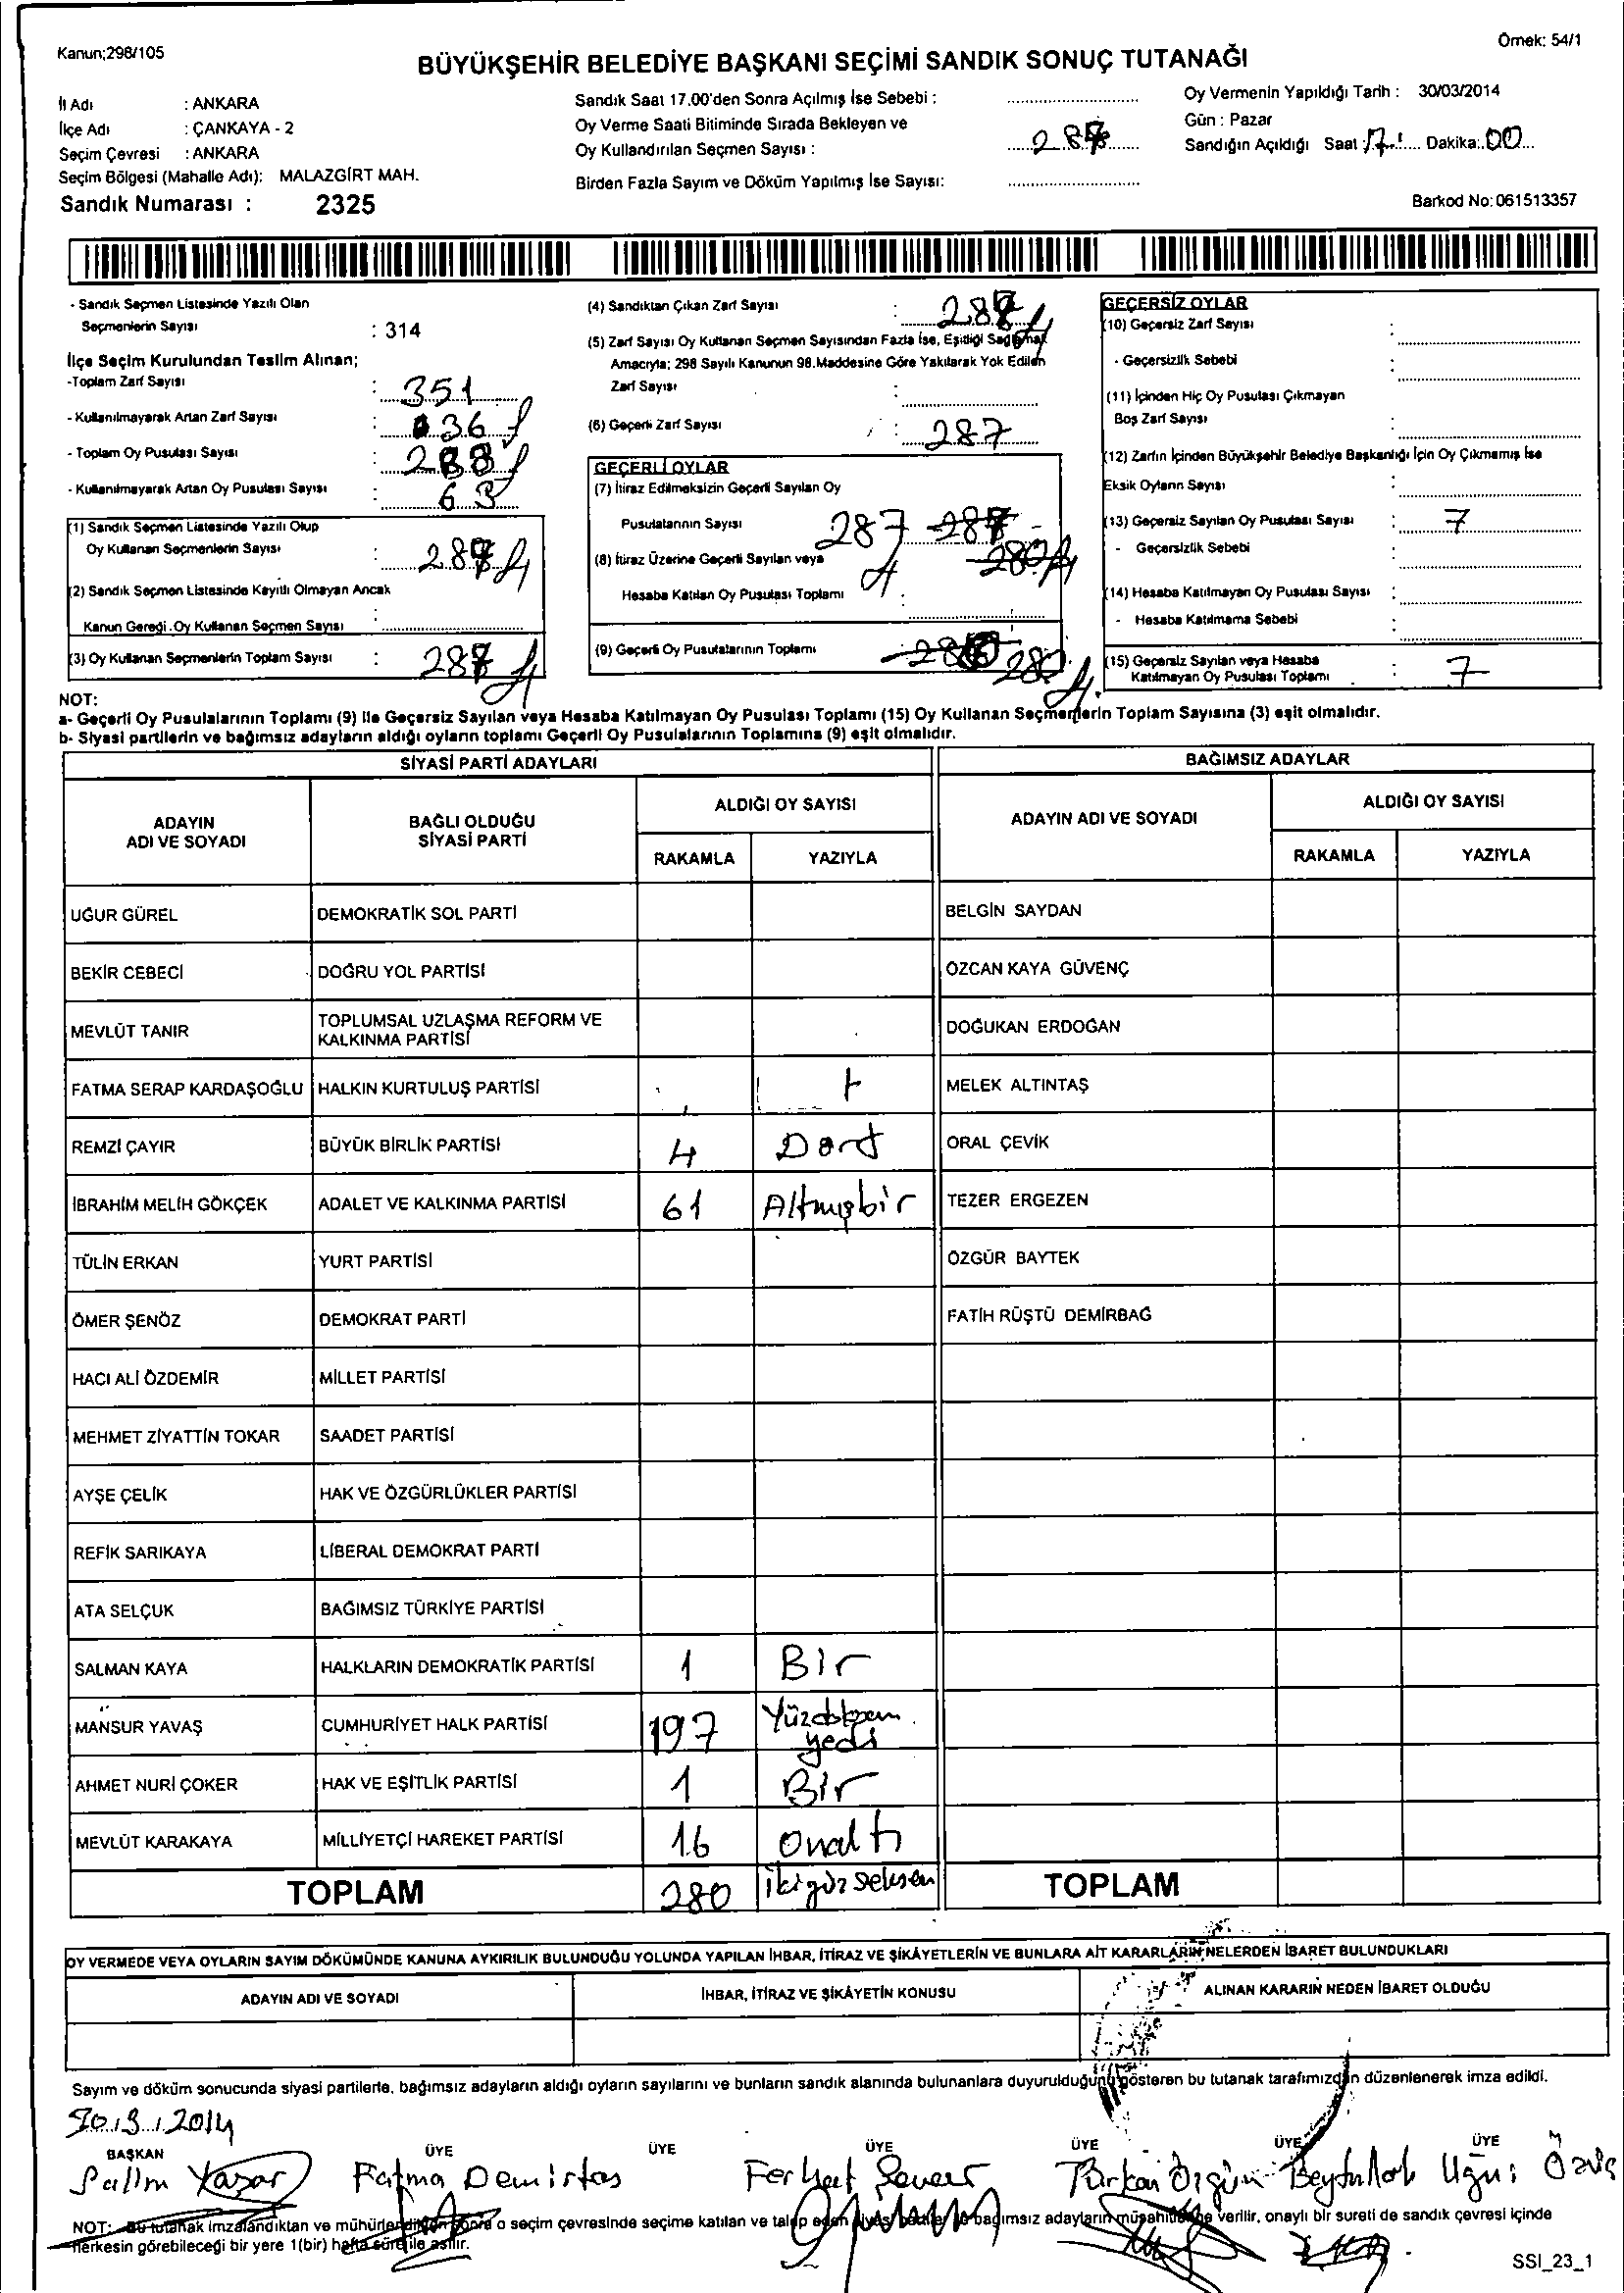 Kanun;298/105
Örnek: 54/1
BÜYÜKŞEHİR BELEDİYE BAŞKANI SEÇİMİ SANDIK SONUÇ TUTANAĞI
İl Adı : ANKARA
İlçe Adı : ÇANKAYA - 2
Seçim Çevresi : ANKARA
Seçim Bölgesi (Mahalle Adı): MALAZGİRT MAH.
Sandık Numarası : 2325
Sandık Saat 17.00'den Sonra Açılmış İse Sebebi :
Oy Verme Saati Bitiminde Sırada Bekleyen ve
Oy Kullandırılan Seçmen Sayısı : 287
Birden Fazla Sayım ve Döküm Yapılmış İse Sayısı:
Oy Vermenin Yapıldığı Tarih : 30/03/2014
Gün : Pazar
Sandığın Açıldığı Saat : 17 Dakika: 00
Barkod No:061513357
- Sandık Seçmen Listesinde Yazılı Olan
Seçmenlerin Sayısı : 314
İlçe Seçim Kurulundan Teslim Alınan;
-Toplam Zarf Sayısı : 351
- Kullanılmayarak Artan Zarf Sayısı : 36
- Toplam Oy Pusulası Sayısı : 288
- Kullanılmayarak Artan Oy Pusulası Sayısı : 63
(1) Sandık Seçmen Listesinde Yazılı Olup
Oy Kullanan Seçmenlerin Sayısı : 287
(2) Sandık Seçmen Listesinde Kayıtlı Olmayan Ancak
Kanun Gereği Oy Kullanan Seçmen Sayısı :
(3) Oy Kullanan Seçmenlerin Toplam Sayısı : 287
(4) Sandıktan Çıkan Zarf Sayısı : 287
(5) Zarf Sayısı Oy Kullanan Seçmen Sayısından Fazla İse, Eşitliği Sağlamak
Amacıyla; 298 Sayılı Kanunun 98.Maddesine Göre Yakılarak Yok Edilen
Zarf Sayısı :
(6) Geçerli Zarf Sayısı : 287
GEÇERLİ OYLAR
(7) İtiraz Edilmeksizin Geçerli Sayılan Oy
Pusulalarının Sayısı 287 287
280
(8) İtiraz Üzerine Geçerli Sayılan veya
Hesaba Katılan Oy Pusulası Toplamı :
(9) Geçerli Oy Pusulalarının Toplamı 280
GEÇERSİZ OYLAR
(10) Geçersiz Zarf Sayısı :
- Geçersizlik Sebebi :
(11) İçinden Hiç Oy Pusulası Çıkmayan
Boş Zarf Sayısı :
(12) Zarfın İçinden Büyükşehir Belediye Başkanlığı İçin Oy Çıkmamış İse
Eksik Oyların Sayısı :
(13) Geçersiz Sayılan Oy Pusulası Sayısı : 7
- Geçersizlik Sebebi :
(14) Hesaba Katılmayan Oy Pusulası Sayısı :
- Hesaba Katılmama Sebebi :
(15) Geçersiz Sayılan veya Hesaba
Katılmayan Oy Pusulası Toplamı : 7
NOT:
a- Geçerli Oy Pusulalarının Toplamı (9) ile Geçersiz Sayılan veya Hesaba Katılmayan Oy Pusulası Toplamı (15) Oy Kullanan Seçmenlerin Toplam Sayısına (3) eşit olmalıdır.
b- Siyasi partilerin ve bağımsız adayların aldığı oyların toplamı Geçerli Oy Pusulalarının Toplamına (9) eşit olmalıdır.
SİYASİ PARTİ ADAYLARI BAĞIMSIZ ADAYLAR
ADAYIN ADI VE SOYADI BAĞLI OLDUĞU SİYASİ PARTİ ALDIĞI OY SAYISI ADAYIN ADI VE SOYADI ALDIĞI OY SAYISI
RAKAMLA YAZIYLA RAKAMLA YAZIYLA
UĞUR GÜREL DEMOKRATİK SOL PARTİ BELGİN SAYDAN
BEKİR CEBECİ DOĞRU YOL PARTİSİ ÖZCAN KAYA GÜVENÇ
MEVLÜT TANIR TOPLUMSAL UZLAŞMA REFORM VE KALKINMA PARTİSİ DOĞUKAN ERDOĞAN
FATMA SERAP KARDAŞOĞLU HALKIN KURTULUŞ PARTİSİ MELEK ALTINTAŞ
REMZİ ÇAYIR BÜYÜK BİRLİK PARTİSİ 4 Dört ORAL ÇEVİK
İBRAHİM MELİH GÖKÇEK ADALET VE KALKINMA PARTİSİ 61 Altmışbir TEZER ERGEZEN
TÜLİN ERKAN YURT PARTİSİ ÖZGÜR BAYTEK
ÖMER ŞENÖZ DEMOKRAT PARTİ FATİH RÜŞTÜ DEMİRBAĞ
HACI ALİ ÖZDEMİR MİLLET PARTİSİ
MEHMET ZİYATTİN TOKAR SAADET PARTİSİ
AYŞE ÇELİK HAK VE ÖZGÜRLÜKLER PARTİSİ
REFİK SARIKAYA LİBERAL DEMOKRAT PARTİ
ATA SELÇUK BAĞIMSIZ TÜRKİYE PARTİSİ
SALMAN KAYA HALKLARIN DEMOKRATİK PARTİSİ 1 Bir
MANSUR YAVAŞ CUMHURİYET HALK PARTİSİ 197 Yüzdoksan yedi
AHMET NURİ ÇOKER HAK VE EŞİTLİK PARTİSİ 1 Bir
MEVLÜT KARAKAYA MİLLİYETÇİ HAREKET PARTİSİ 16 Onaltı
TOPLAM 280 İkiyüz seksen TOPLAM
OY VERMEDE VEYA OYLARIN SAYIM DÖKÜMÜNDE KANUNA AYKIRILIK BULUNDUĞU YOLUNDA YAPILAN İHBAR, İTİRAZ VE ŞİKÂYETLERİN VE BUNLARA AİT KARARLARIN NELERDEN İBARET BULUNDUKLARI
ADAYIN ADI VE SOYADI İHBAR, İTİRAZ VE ŞİKÂYETİN KONUSU ALINAN KARARIN NEDEN İBARET OLDUĞU
Sayım ve döküm sonucunda siyasi partilerle, bağımsız adayların aldığı oyların sayılarını ve bunların sandık alanında bulunanlara duyurulduğunu gösteren bu tutanak tarafımızdan düzenlenerek imza edildi.
30.3.2014
BAŞKAN ÜYE ÜYE ÜYE ÜYE ÜYE ÜYE
Salim Yaşar Fatma Demirtas Ferhat Türkan Özgün Beytullah
NOT: Bu tutanak imzalandıktan ve mühürlendikten sonra o seçim çevresinde seçime katılan ve talep eden siyasi partiler ile bağımsız adayların müşahitlerine verilir, onaylı bir sureti de sandık çevresi içinde
herkesin görebileceği bir yere 1(bir) hafta süre ile asılır.
SSI_23_1